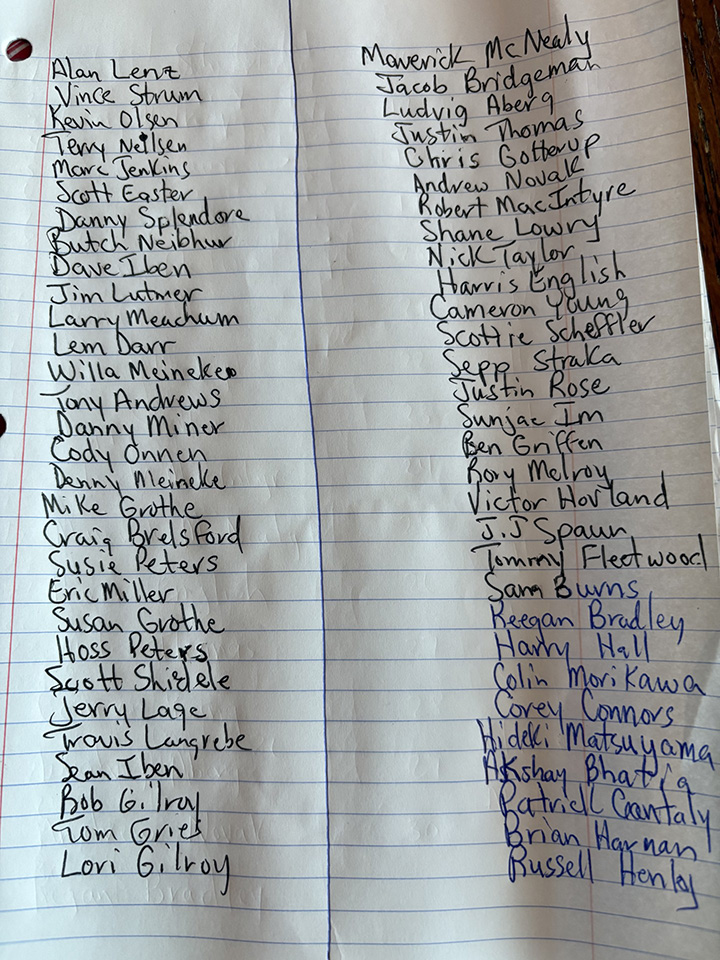 Alan Lenz
Vince Strum
Kevin Olsen
Terry Neilsen
Marc Jenkins
Scott Easter
Danny Splendore
Butch Neibhur
Dave Iben
Jim Lutmer
Larry Meachum
Lem Darr
Willa Meineke
Tony Andrews
Danny Miner
Cody Onnen
Denny Meineke
Mike Grothe
Craig Brelsford
Susie Peters
Eric Miller
Susan Grothe
Hoss Peters
Scott Shidele
Jerry Lage
Travis Langrebe
Sean Iben
Bob Gilroy
Tom Gries
Lori Gilroy
Maverick McNealy
Jacob Bridgeman
Ludvig Aberg
Justin Thomas
Chris Gotterup
Andrew Novak
Robert MacIntyre
Shane Lowry
Nick Taylor
Harris English
Cameron Young
Scottie Scheffler
Sepp Straka
Justin Rose
Sunjae Im
Ben Griffen
Rory Melroy
Victor Hovland
J.J Spaun
Tommy Fleetwood
Sam Burns
Keegan Bradley
Harry Hall
Colin Morikawa
Corey Connors
Hideki Matsuyama
Akshay Bhatia
Patrick Cantaly
Brian Harnan
Russell Henley